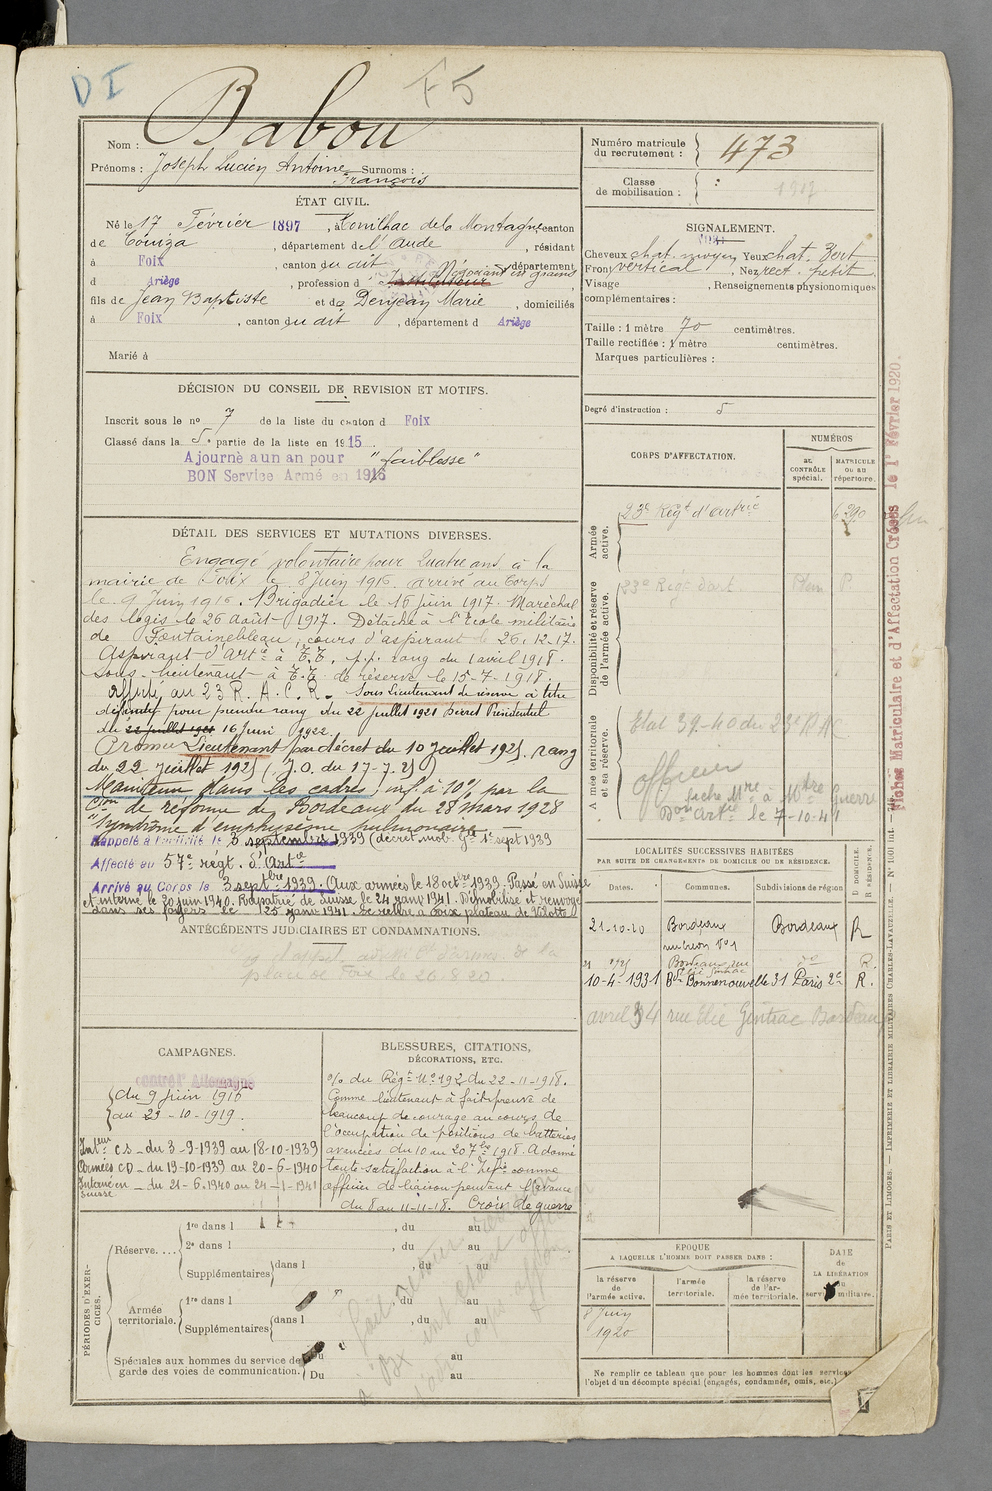 D I
F 5
Nom : Babou
Prénoms : Joseph Lucien Antoine Surnoms :
François
ÉTAT CIVIL.
Né le 17 Février 1897, à Conilhac de la Montagne canton
de Couiza, département de l'Aude, résidant
à Foix, canton du dit, département
d Ariège, profession d Négociant en grains
fils de Jean Baptiste et de Denjean Marie, domiciliés
à Foix, canton du dit, département d Ariège
Marié à
DÉCISION DU CONSEIL DE REVISION ET MOTIFS.
Inscrit sous le no 7 de la liste du canton d Foix
Classé dans la 5e partie de la liste en 1915
Ajourné a un an pour "faiblesse"
BON Service Armé en 1916
DÉTAIL DES SERVICES ET MUTATIONS DIVERSES.
Engagé volontaire pour Quatre ans, à la
mairie de Foix le 8 Juin 1916. arrivé au Corps
le 9 Juin 1916. Brigadier le 16 juin 1917. Maréchal
des logis le 26 août 1917. Détaché à l'École militaire
de Fontainebleau, cours d'aspirant le 26.12.17.
Aspirant d'Artie à T.T. p.p. rang du 1 avril 1918.
Sous-lieutenant à T.T. de réserve le 15-7-1918.
affecté au 23 R.A.C.R. Sous Lieutenant de réserve à titre
définitif pour prendre rang du 22 juillet 1921 Décret Présidentiel
du 22 juillet 1921 16 Juin 1922.
Promu Lieutenant par décret du 10 Juillet 1925. rang
du 22 Juillet 1925 (J.O. du 17-7-25)
Maintenu dans les cadres, inf. à 10% par la
Cion de réforme de Bordeaux du 28 mars 1928
"Syndrome d'emphysème pulmonaire"
Rappelé à l'activité le 3 septembre 1939 (décret mob. Gle 1er sept 1939
Affecté au 57e régt. d'Artie
Arrivé au Corps le 3 septbre 1939. Aux armées le 18 octbre 1939. Passé en Suisse
et interné le 20 juin 1940. Rapatrié de Suisse le 24 janv 1941. Démobilisé et renvoyé
dans ses foyers le 25 janv 1941. Se retire à Foix
ANTÉCÉDENTS JUDICIAIRES ET CONDAMNATIONS.
de la
place de Foix le 26.8.20.
CAMPAGNES.
contre l'Allemagne
du 9 Juin 1916
au 23-10-1919.
Intéur CS - du 3-9-1939 au 18-10-1939
Armées CD - du 19-10-1939 au 20-6-1940
Interné en - du 21-6-1940 au 24-1-1941
Suisse
BLESSURES, CITATIONS,
DÉCORATIONS, ETC.
% du Régt No 192 du 22-11-1918.
Comme lieutenant a fait preuve de
beaucoup de courage au cours de
l'occupation de positions de batteries
avancées du 10 au 20 7bre 1918. A donné
toute satisfaction à l'Infie comme
officier de liaison pendant l'avance
du 8 au 11-11-18. Croix de guerre
PÉRIODES D'EXERCICES.
Réserve....
1re dans l , du au
2e dans l , du au
Supplémentaires dans l , du au
Armée territoriale.
1re dans l , du au
Supplémentaires dans l , du au
Spéciales aux hommes du service de garde des voies de communication.
Du au
Du au
Numéro matricule du recrutement : 473
Classe de mobilisation : 1917
SIGNALEMENT.
Cheveux chat. moyen Yeux chat. Vert
Front vertical, Nez rect. petit
Visage , Renseignements physionomiques
complémentaires :
Taille : 1 mètre 70 centimètres.
Taille rectifiée : 1 mètre centimètres.
Marques particulières :
Degré d'instruction : 5
CORPS D'AFFECTATION.
NUMÉROS
au CONTRÔLE spécial.
MATRICULE ou au répertoire.
Armée active.
23e Régt d'artie
6290
Disponibilité et réserve de l'armée active.
23e Régt d'art.
Armée territoriale et sa réserve.
Etat 39-40 du 23e RAC
officier
fiche Mre à Mtre Guerre
Don artie le 7-10-41
Fichier Matriculaire et d'Affectation Créées le 1er Février 1920.
LOCALITÉS SUCCESSIVES HABITÉES
PAR SUITE DE CHANGEMENTS DE DOMICILE OU DE RÉSIDENCE.
Dates. Communes. Subdivisions de région D DOMICILE. R RÉSIDENCE.
21-10-20 Bordeaux Bordeaux R
Bordeaux rue do R.
10-4-1931 Bd Bonne nouvelle 31 Paris 2e R.
avril 34 rue Elie Gintrac Bordeaux
EPOQUE
A LAQUELLE L'HOMME DOIT PASSER DANS :
la réserve de l'armée active.
l'armée territoriale.
la réserve de l'armée territoriale.
DATE de LA LIBÉRATION du service militaire.
8 Juin
1920
Ne remplir ce tableau que pour les hommes dont les services
l'objet d'un décompte spécial (engagés, condamnés, omis, etc.)
PARIS ET LIMOGES. — IMPRIMERIE ET LIBRAIRIE MILITAIRES CHARLES-LAVAUZELLE. — No 1001 int.